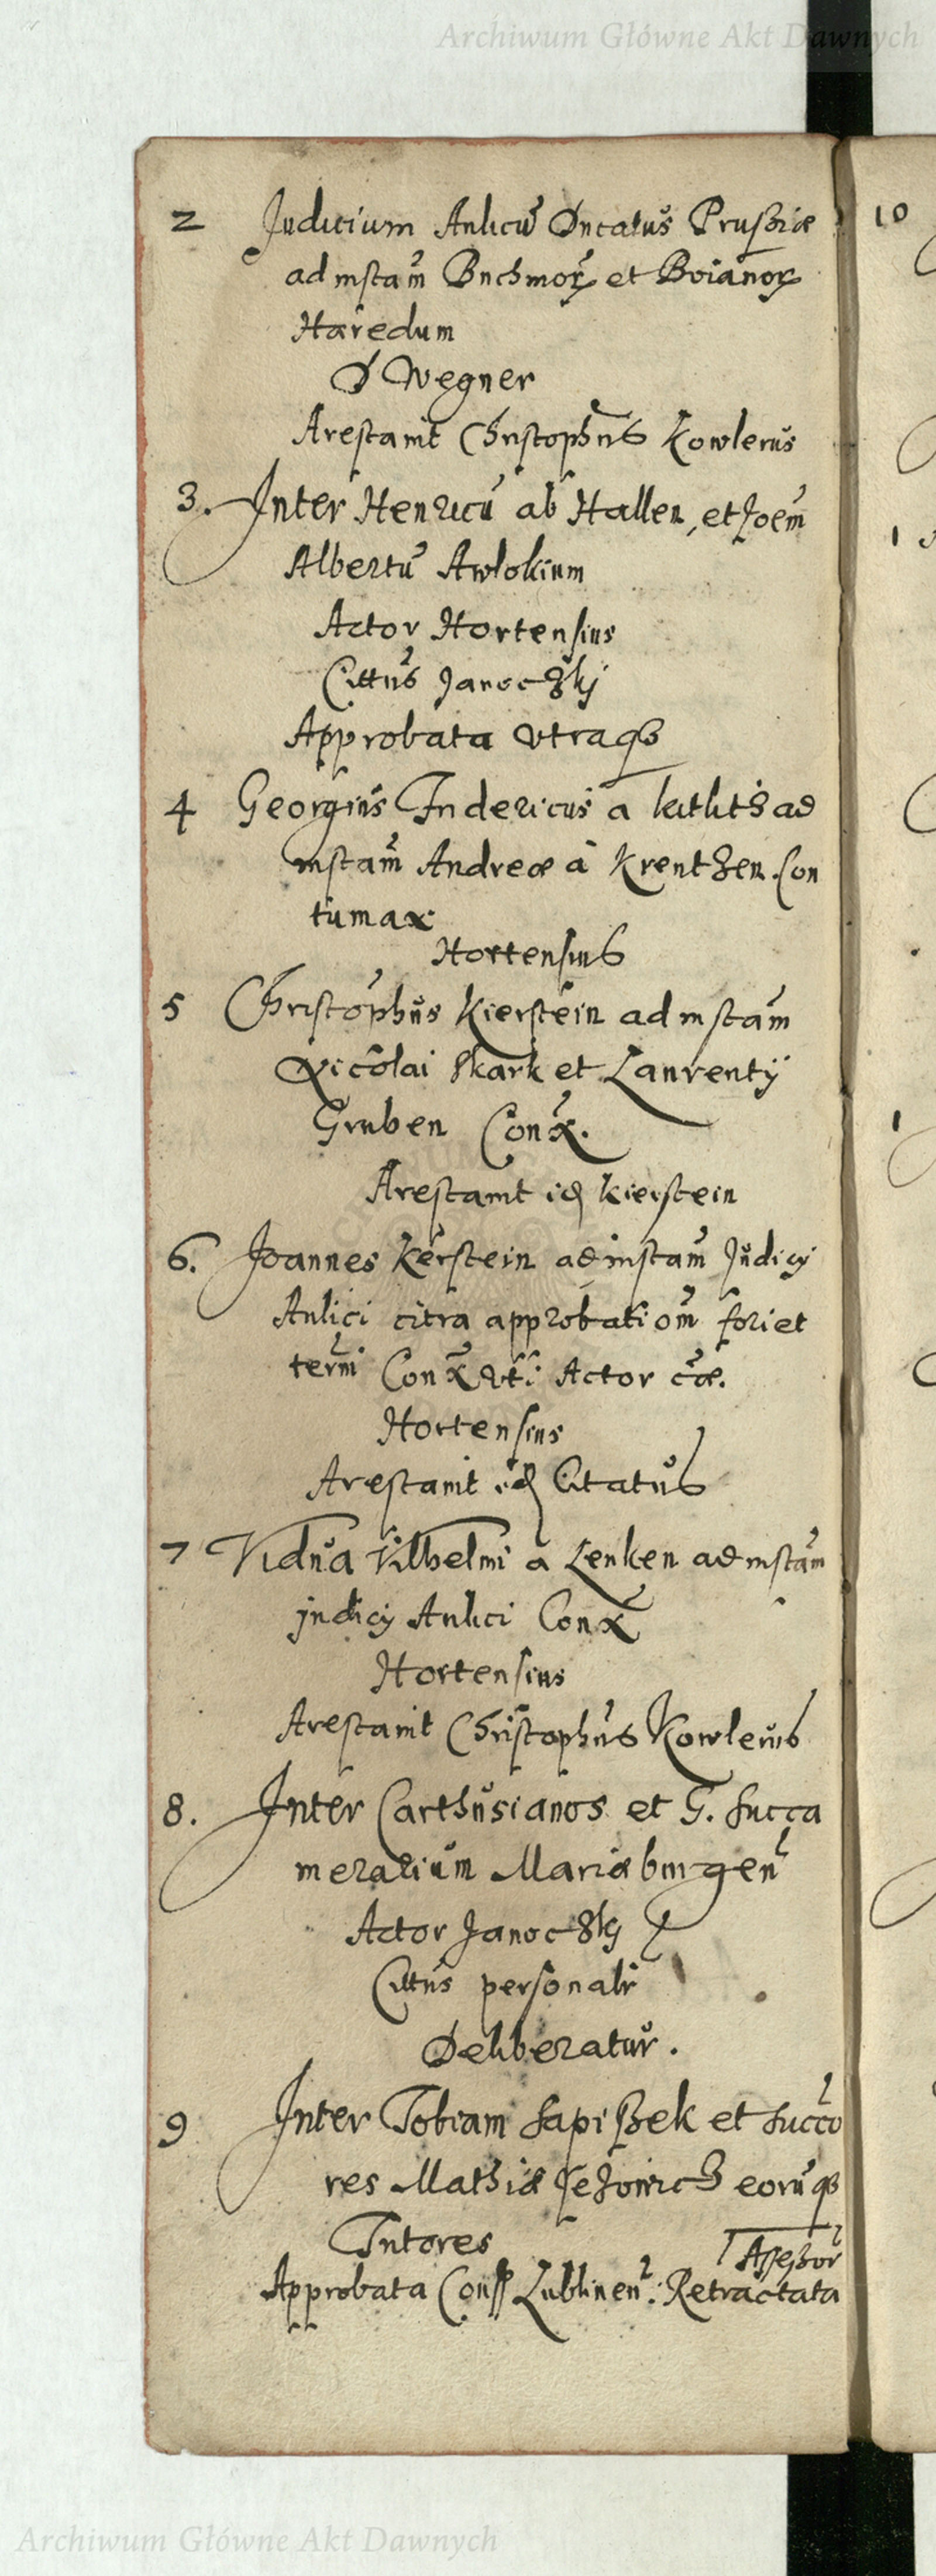 Archiwum Główne Akt Dawnych
2 Judicium Aulicū Ducatus Prussiæ
ad instam̄ et Boianor
Hæredum
D Wegner
Arestavit Christophus Kowlerus
3. Inter Henricū ab Hallen, et Joēm
Albertū Awlokium
Actor Hortensius
Cittus Janoczskj
Approbata vtraqꝫ
4 Georgius Fridericus a ad
instam̄ Andreæ à Kreutzen. Con
tumax
Hortensius
5 Christophus Kierstein ad instam̄
Nicolai Skark et Laurentÿ
Gruben Conx.
Arestavit id Kierstein
6. Joannes Kerstein ad instam̄ Judicÿ
Aulici citra approbatiom̄ fori et
termi Conx vti Actor cæ.
Hortensius
Arestavit id Citatus
7 Vidua Vilhelmi a Lenken ad instam̄
judicÿ Aulici Conx
Hortensius
Arestavit Christophus Kowlerus
8. Inter Carthusianos et G. Succa
merarium Mariæburgen
Actor Janoczskÿ
Cittus personalr
Deliberatur.
9 Inter Tobiam Sapiszek et Succo
res Mathiæ eorūqꝫ
Tutores
Assessor
Approbata Conss Lublinen: Retractata
10
Archiwum Główne Akt Dawnych